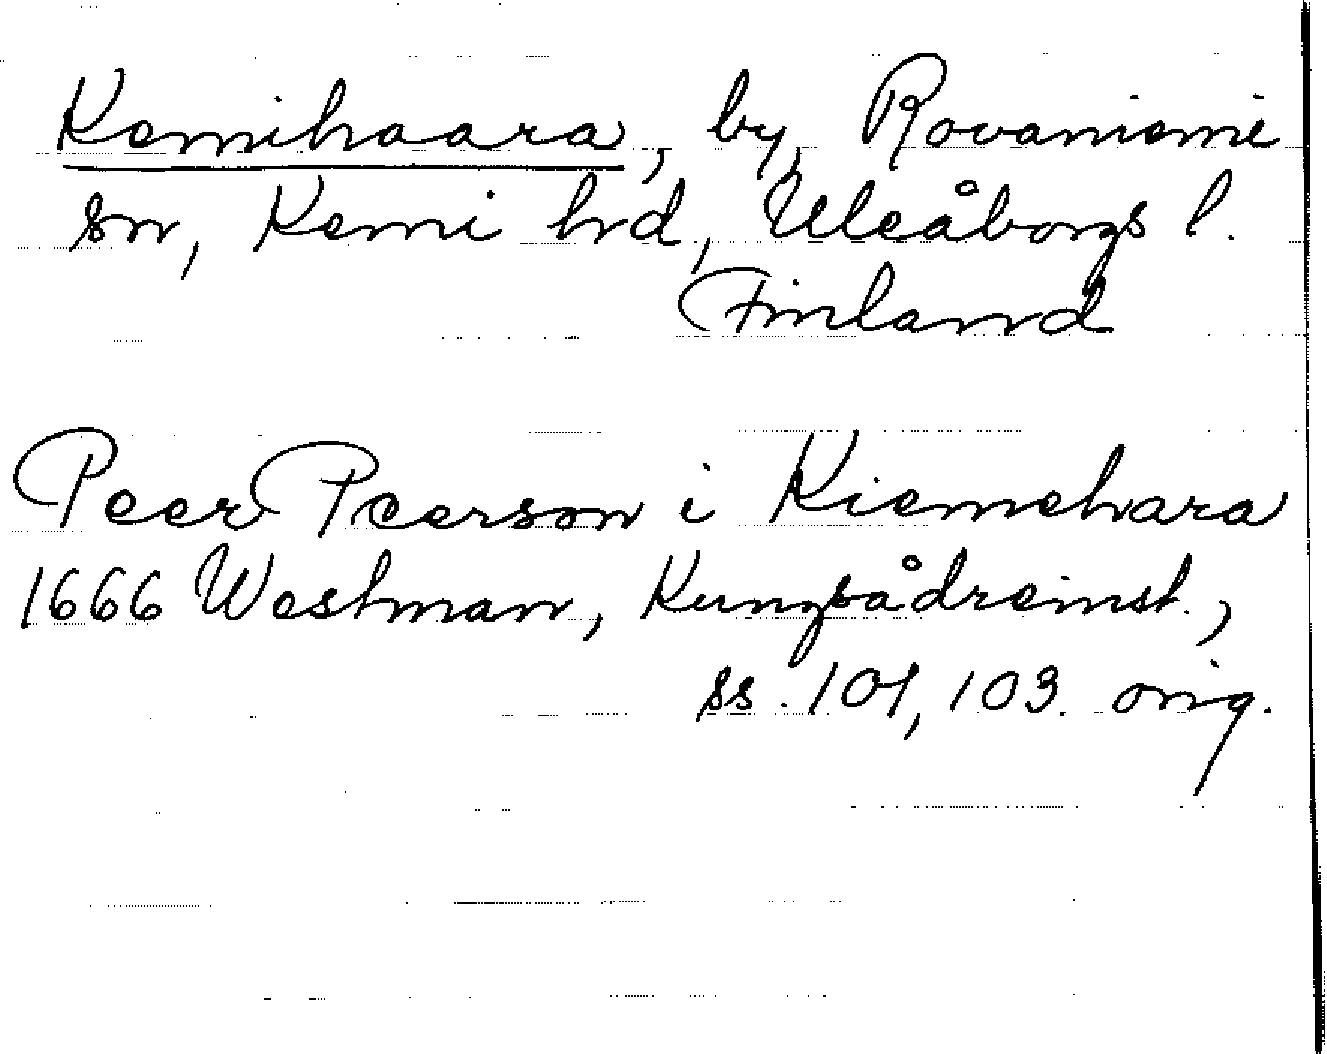 Kemihaara, by, Rovaniemi
sn, Kemi hrd, Uleåborgs l.
Finland
Peer Peerson i Kiemehara
1666 Westman, Kungsådreinst.,
ss. 101, 103. orig.